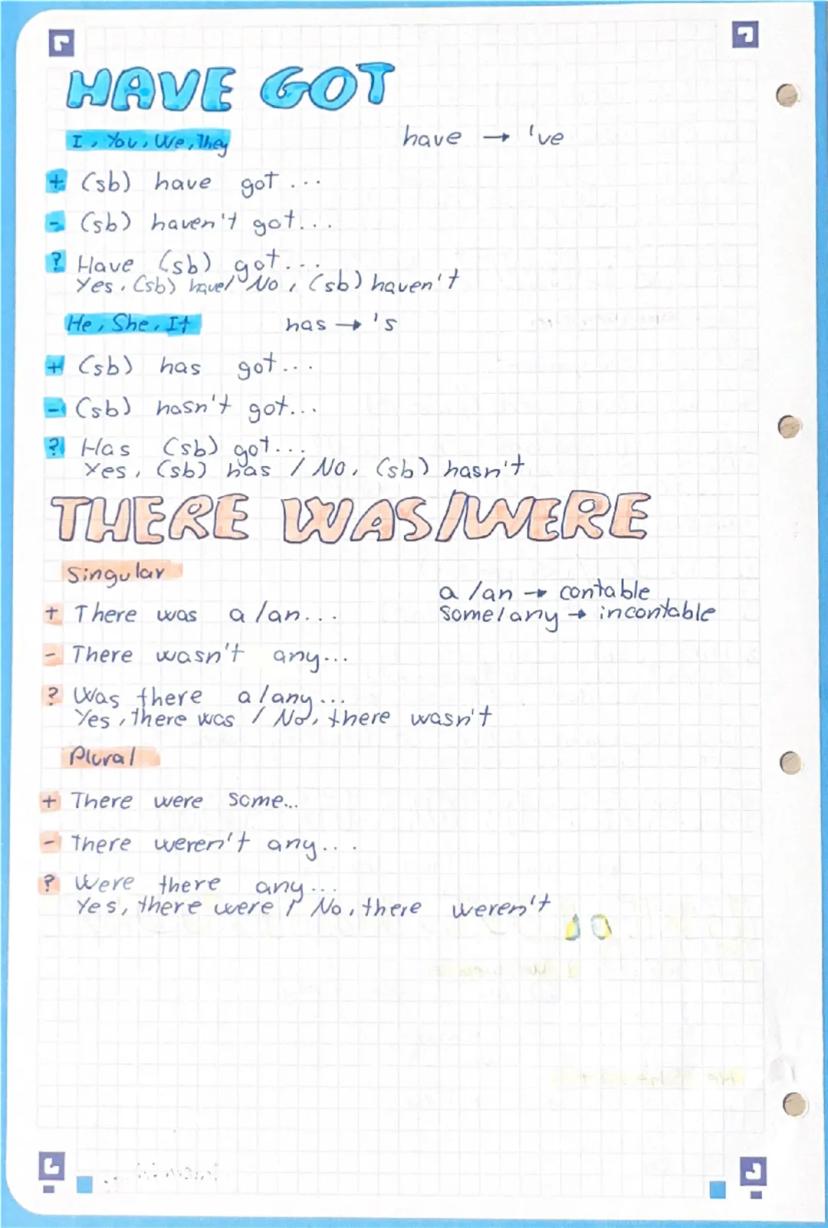 HAVE GOT
I, You, We, They have → 've
+ (sb) have got ...
- (sb) haven't got...
? Have (sb) got...
Yes, (sb) have/ No, (sb) haven't
He, She, It has → 's
+ (sb) has got...
- (sb) hasn't got...
? Has (sb) got...
Yes, (sb) has / No, (sb) hasn't
THERE WAS/WERE
Singular
a /an → contable
+ There was a/an...
some/any → incontable
- There wasn't any...
? Was there a/any...
Yes, there was / No, there wasn't
Plural
+ There were some...
- There weren't any...
? Were there any...
Yes, there were / No, there weren't